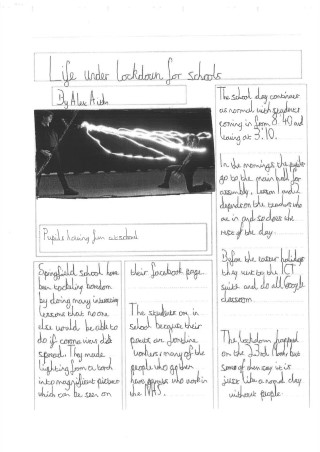 Life under lockdown for schools
By Alex
Pupils having fun in school
Springfield school have
been tackling boredom
by doing many interesting
lessons that no one
else would be able to
do if corona virus didn't
spread. They made
lighting from a torch
into magnificent pictures
which can be seen on
their facebook page.
The students are in
school because their
parents are frontline
workers, many of the
people who go there
have parents who work in
the NHS.
The school day continues
as normal with students
coming in from 8:40 and
leaving at 3:10.
In the mornings the pupils
go to the main hall for
assembly. Lesson 1 and 2
depends on the teachers who
are in and so does the
rest of the day.
Before the easter holidays
they went to the ICT
suite and do all google
classroom.
The lockdown happened
on the 23rd March but
some of them say it is
just like a normal day
without people.